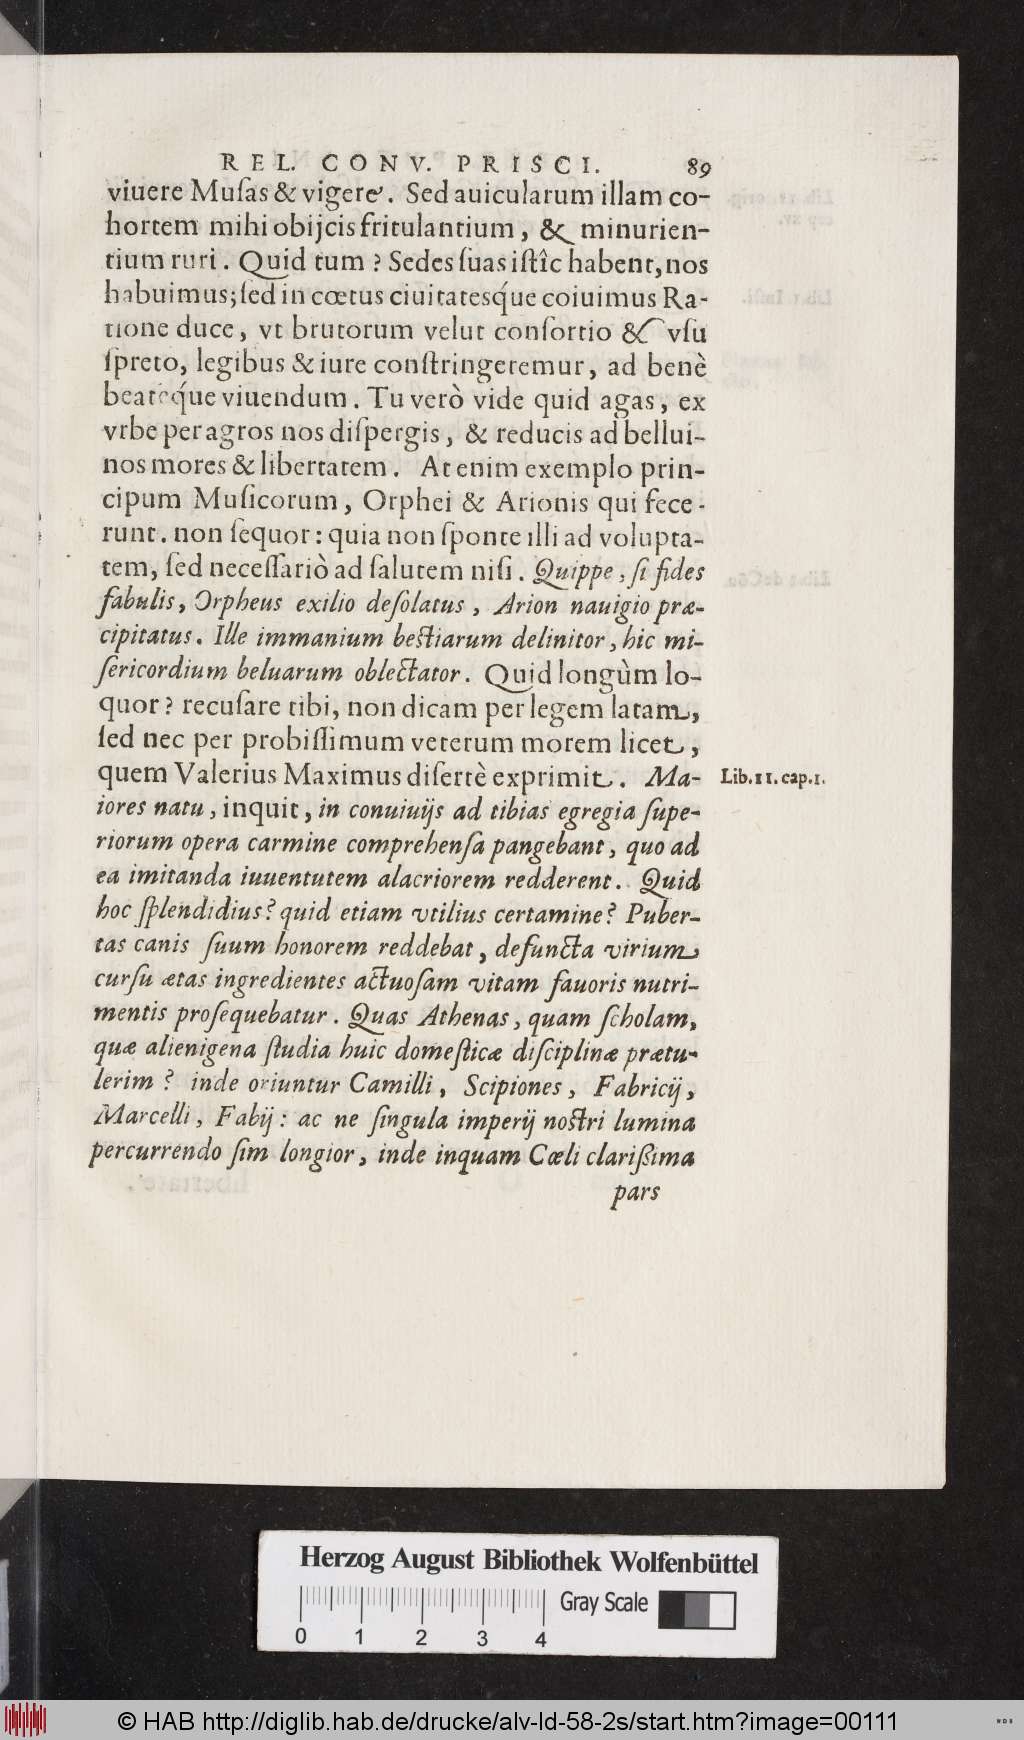 REL. CONV. PRISCI. 89
viuere Muſas & vigere. Sed auicularum illam co-
hortem mihi obijcis fritulantium, & minurien-
tium ruri. Quid tum? Sedes ſuas iſtîc habent, nos
habuimus; ſed in cœtus ciuitatesq́ue coiuimus Ra-
tione duce, vt brutorum velut conſortio & vſu
ſpreto, legibus & iure conſtringeremur, ad benè
beateq́ue viuendum. Tu verò vide quid agas, ex
vrbe per agros nos diſpergis, & reducis ad bellui-
nos mores & libertatem. At enim exemplo prin-
cipum Muſicorum, Orphei & Arionis qui fece-
runt. non ſequor: quia non ſponte illi ad volupta-
tem, ſed neceſſariò ad ſalutem niſi. Quippe, ſi fides
fabulis, Orpheus exilio deſolatus, Arion nauigio præ-
cipitatus. Ille immanium beſtiarum delinitor, hic mi-
ſericordium beluarum oblectator. Quid longùm lo-
quor? recuſare tibi, non dicam per legem latam,
ſed nec per probiſſimum veterum morem licet,
quem Valerius Maximus diſertè exprimit. Ma-
Lib. 11. cap. 1.
iores natu, inquit, in conuiuijs ad tibias egregia ſupe-
riorum opera carmine comprehenſa pangebant, quo ad
ea imitanda iuuentutem alacriorem redderent. Quid
hoc ſplendidius? quid etiam vtilius certamine? Puber-
tas canis ſuum honorem reddebat, defuncta virium
curſu ætas ingredientes actuoſam vitam fauoris nutri-
mentis proſequebatur. Quas Athenas, quam ſcholam,
quæ alienigena ſtudia huic domeſticæ diſciplinæ prætu-
lerim? inde oriuntur Camilli, Scipiones, Fabricij,
Marcelli, Fabij: ac ne ſingula imperij noſtri lumina
percurrendo ſim longior, inde inquam Cœli clarißima
pars
Herzog August Bibliothek Wolfenbüttel
Gray Scale
0 1 2 3 4
© HAB http://diglib.hab.de/drucke/alv-ld-58-2s/start.htm?image=00111